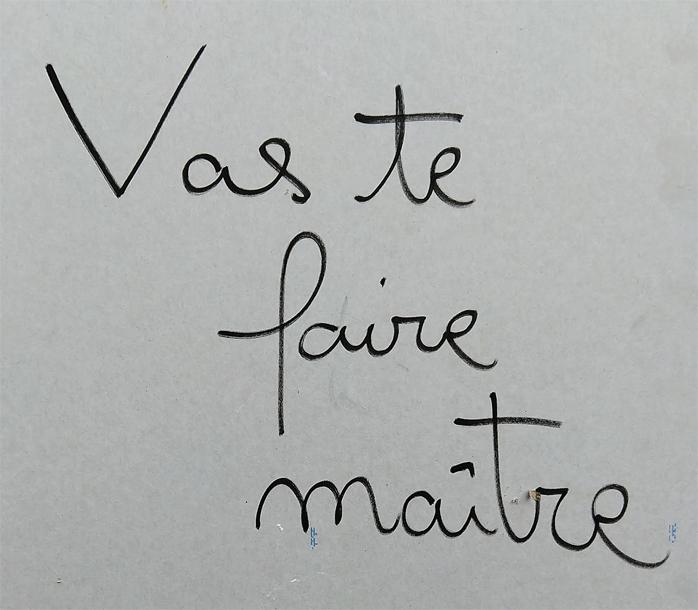 Vas te
faire
maître